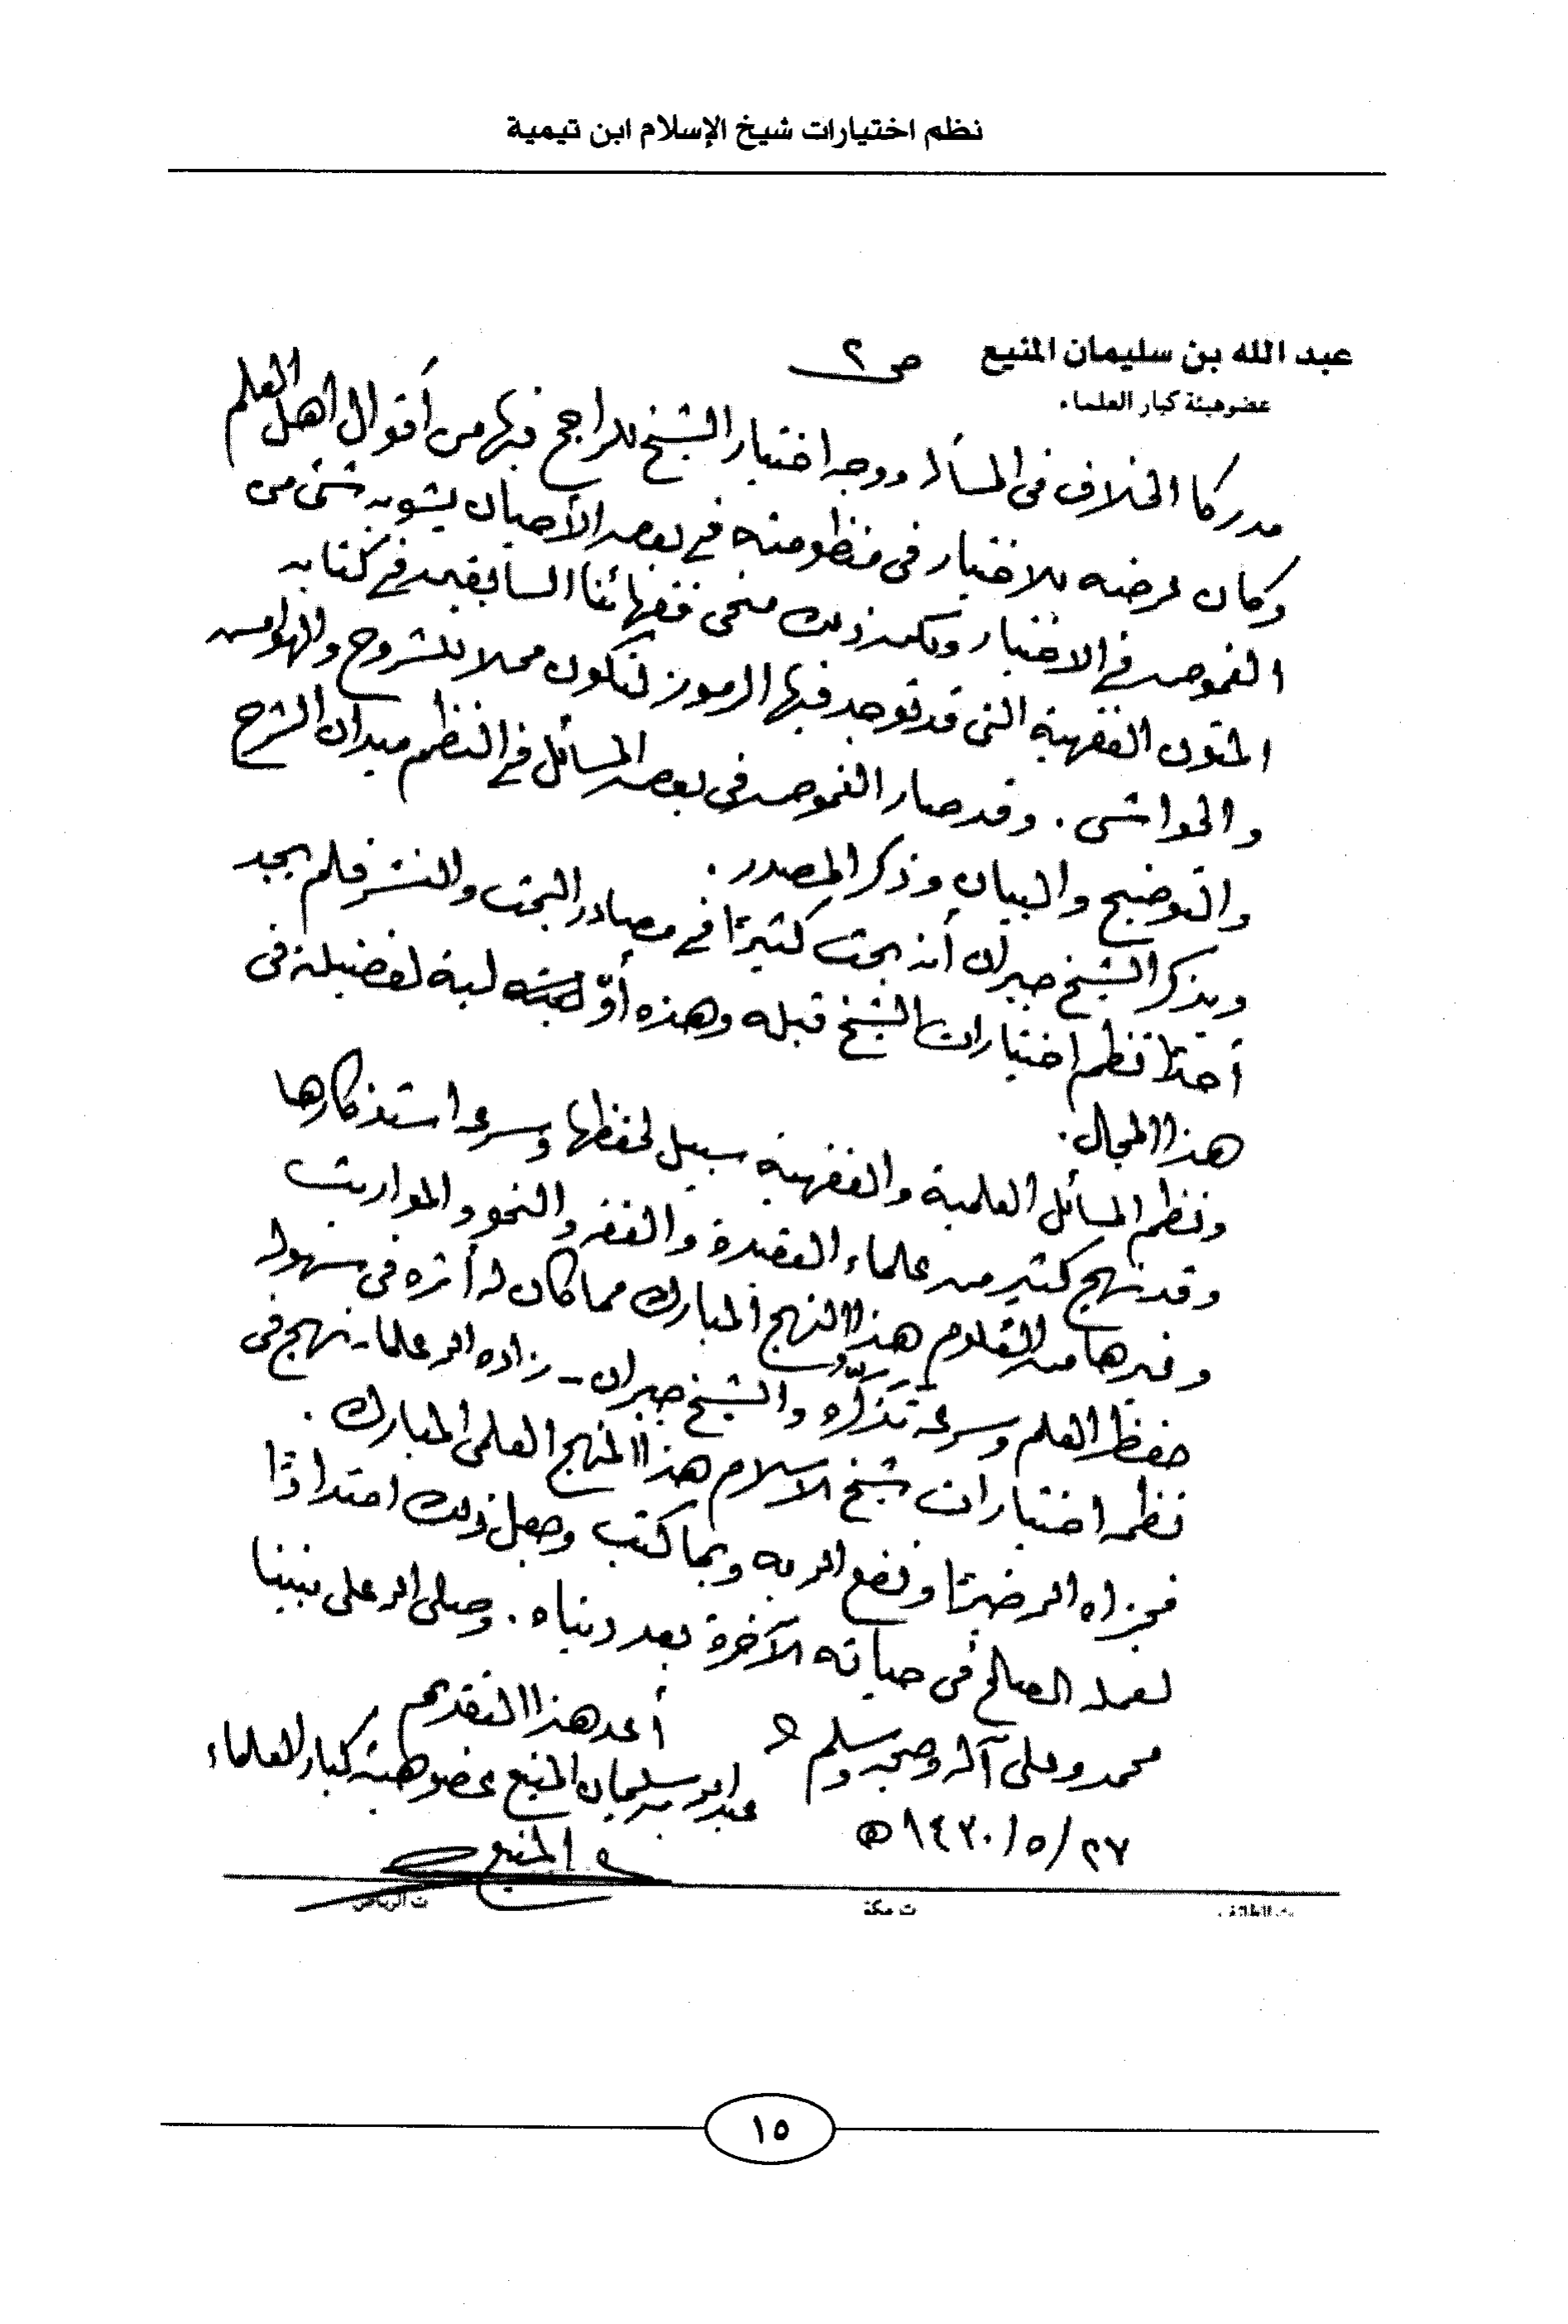 نظم اختيارات شيخ الإسلام ابن تيمية
عبد الله بن سليمان المنيع ص ٢
عضو هيئة كبار العلماء
مدركا الخلاف في المسألة ووجه اختيار الشيخ للراجح فيها من أقوال أهل العلم
وكان عرضه للاختيار في منظومته في بعض الأحيان يشوبه شئ من
الغموض في الاختيار ولكن ذلك منحى فقهائنا السابقين في كتابة
المتون الفقهية التي قد توجد فيها الرموز لتكون محلا للشروح والهوامش
والحواشي . وقد صار الغموض في بعض المسائل في النظم ميدان الشرح
والتوضيح والبيان وذكر المصدر .
ويذكر الشيخ جبران أنه بحث كثيرًا في مصادر البحث والنشر فلم يجد
أحدًا نظم اختيارات الشيخ قبله وهذه أوّل لبنة لفضيلته في
هذا المجال .
ونظم المسائل العلمية والفقهية سبيل لحفظها وسرعة استذكارها
وقد نهج كثير من علماء العقيدة والفقه والنحو والمواريث
وغيرها من العلوم هذا النهج المبارك مما كان له أثره في سهولة
حفظ العلم وسرعة تذكره والشيخ جبران - زاده الله علما - نهج في
نظم اختيارات شيخ الاسلام هذا المنهج العلمي المبارك .
فجزاه الله خيرًا ونفع الله به وبما كتب وجعل ذلك امتدادًا
لعمله الصالح في حياته الآخرة بعد دنياه . وصلى الله على نبينا
محمد وعلى آله وصحبه وسلم
أعد هذا التقديم
عبد الله بن سليمان المنيع عضو هيئة كبار العلماء
٢٧/٥/١٤٣٠ه
المنيع
ت الطائف ت مكة ت الرياض
١٥